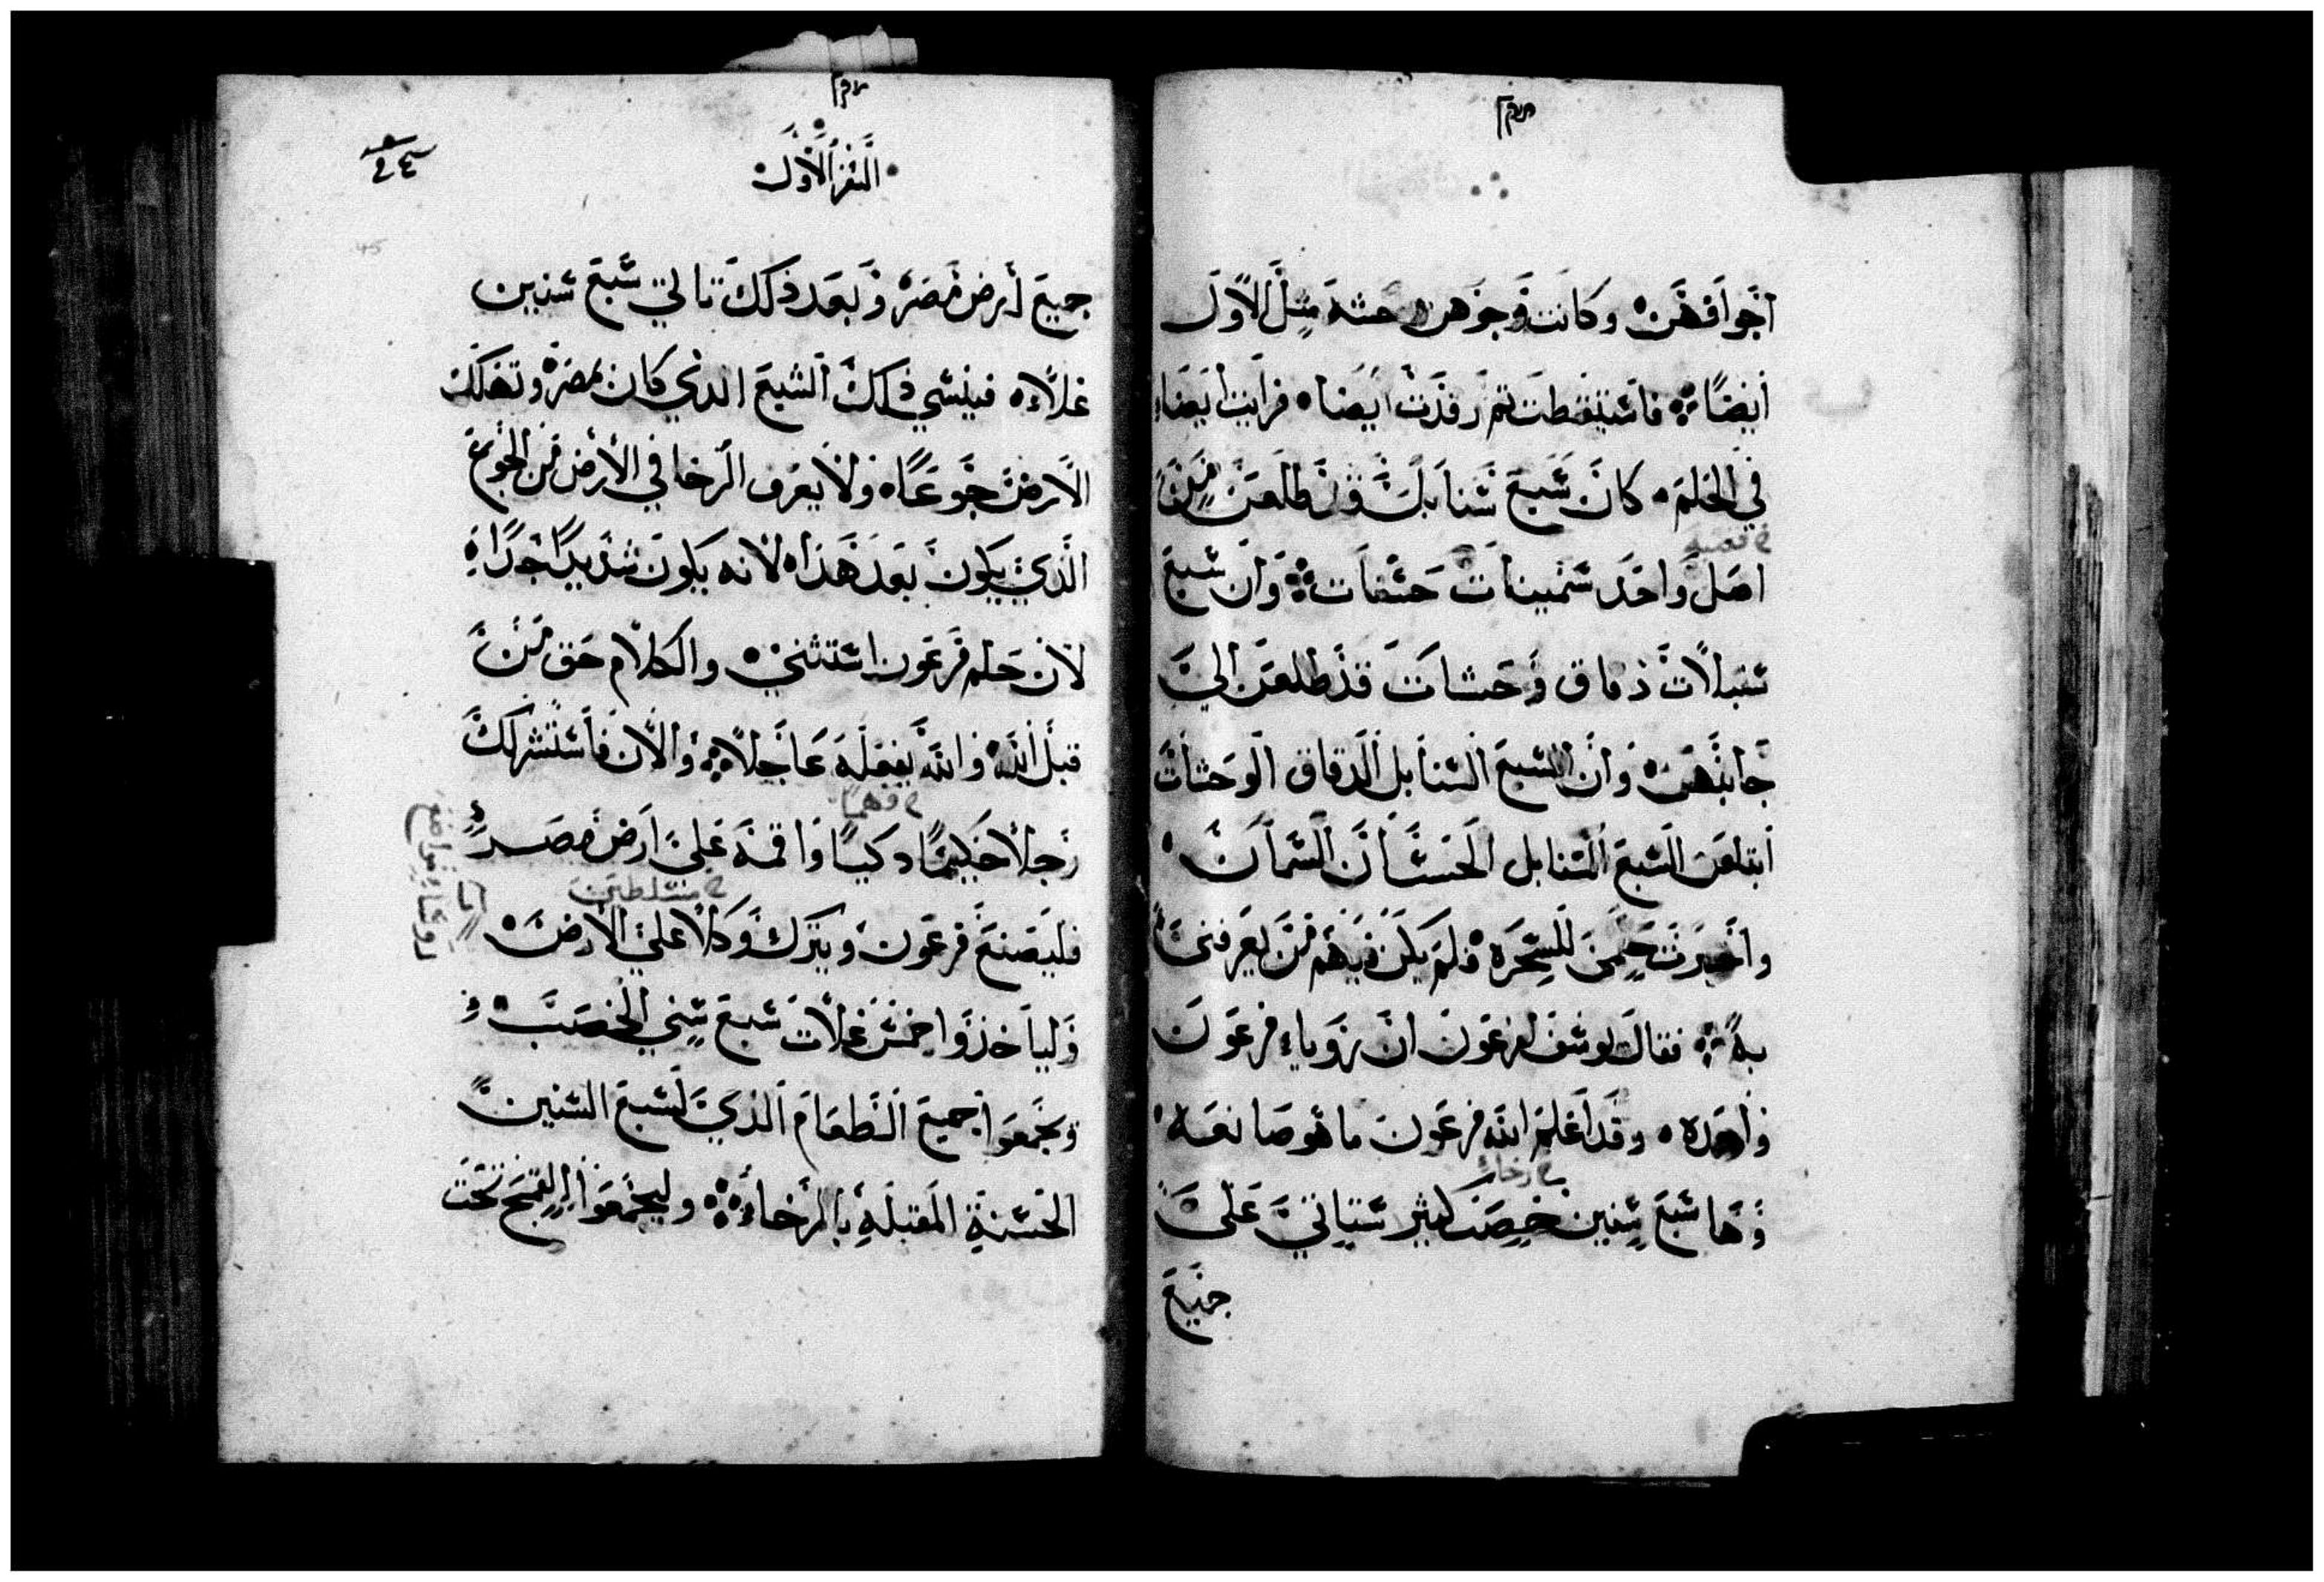 اجوافهن وكانت وجوههن وحشه مثل الاول
ايضًا فاستيقظت ثم رقدت ايضا فرايت ايضا
في الحلم كان سبع سنابل قد طلعن من
اصل واحد سمينات حسنات وان سبع
سنبلات دقاق وحشات قد طلعن الي
جانبهن وان السبع السنابل الدقاق الوحشات
ابتلعن السبع السنابل الحسان السمان
واخبرت حلمي للسحره فلم يكن فيهم من يعرفني
به فقال يوسف لفرعون ان روياء فرعون
واحده وقد اعلم الله فرعون ما هو صانعه
رخاء
وها سبع سنين خصب كثير ستاتي علي
جميع
السفر الاول
جميع ارض مصر وبعد ذلك تاتي سبع سنين
غلاء فينسي ذلك الشبع الذي كان بمصر وتهلك
الارض جوعًا ولا يعرف الرخا في الارض من الجوع
الذي يكون بعد هذا لانه يكون شديدًا جدًا
لان حلم فرعون استثني والكلام حق من
قبل الله والله يفعله عاجلاً والان فاستشر لك
فهمًا
رجلاً حكيمًا دكيًا واقمه علي ارض مصر
متسلطين
فليصنع فرعون ويترك وكلا علي الارض
ولياخذوا خمس غلات سبع سني الخصب
ويجمعوا جميع الطعام الذي لسبع السنين
الحسنة المقبلة بالرخاء وليجمعوا القمح تحت